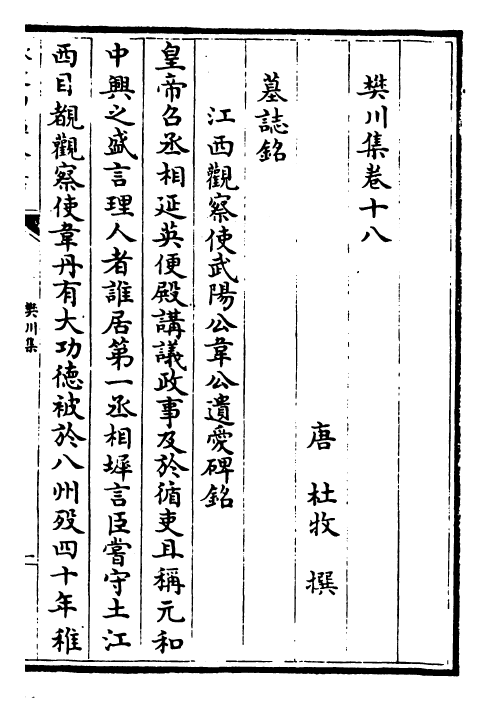 樊川集卷十八
唐 杜牧 撰
墓誌銘
江西觀察使武陽公韋公遺愛碑銘
皇帝召丞相延英便殿講議政事及於循吏且稱元和
中興之盛言理人者誰居第一丞相墀言臣嘗守土江
西目覩觀察使韋丹有大功德被於八州歿四十年稚
樊川集